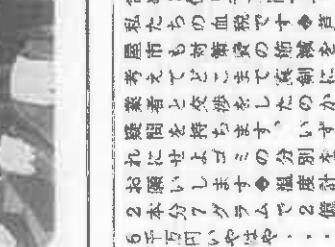 私たちの血税です◆芦
屋市も対策費の節減を
考えてどこまで真剣に
業者と交渉をしたのか
疑問を持ちます。いず
れにせよゴミの分別を
お願いします◆温度計
2本分7グラムで2億
6千万円いやはや・・・